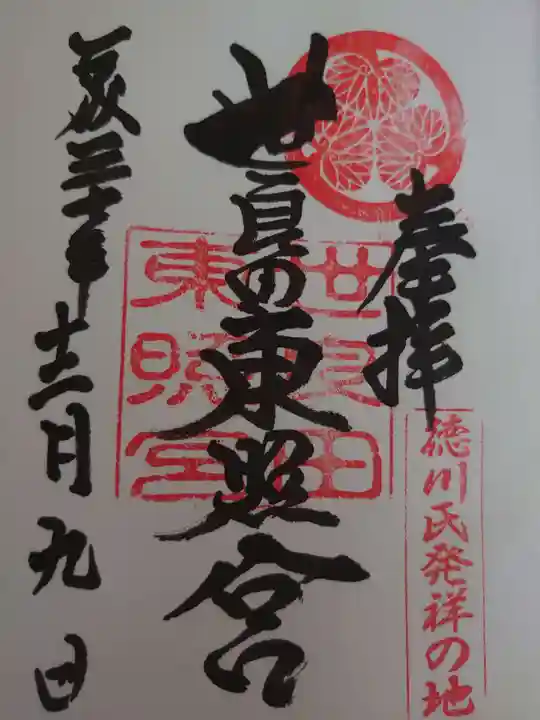 奉拝
徳川氏発祥の地
世良田東照宮
世良田
東照宮
平成三十年
十二月九日